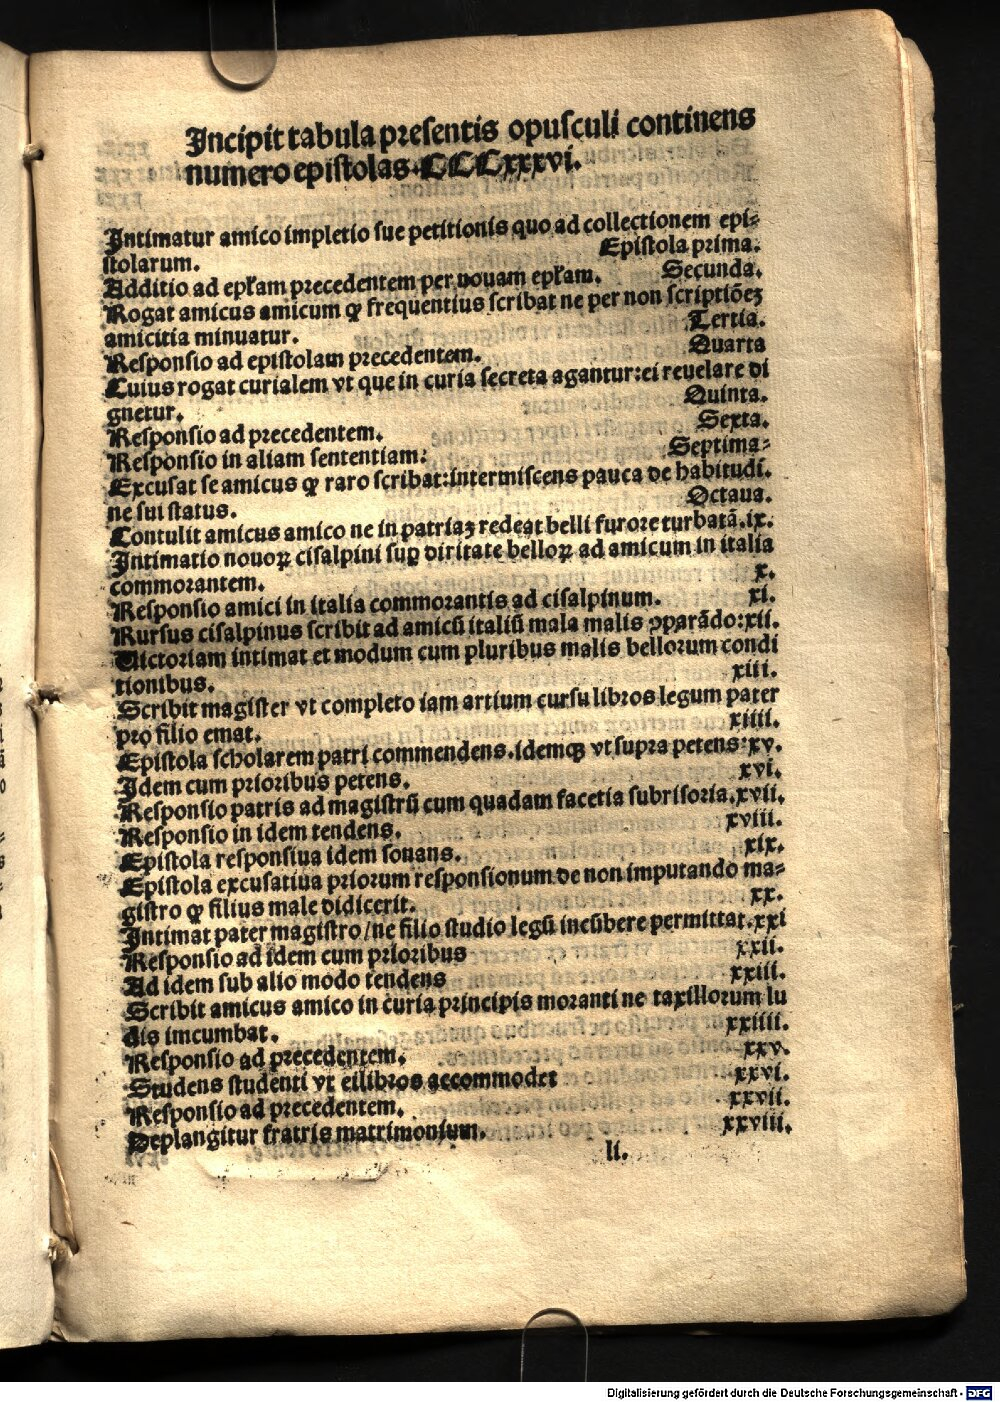 Incipit tabula presentis opusculi continens
numero epistolas CCCxxxvi.
Intimatur amico impletio sue petitionis quo ad collectionem epi-
stolarum. Epistola prima.
Additio ad epłam precedentem per nouam epłam. Secunda.
Rogat amicus amicum ꝙ frequentius scribat ne per non scriptiōeꝫ
amicitia minuatur. Tertia.
Responsio ad epistolam precedentem. Quarta
Cuius rogat curialem vt que in curia secreta agantur:ei reuelare di
gnetur. Quinta.
Responsio ad precedentem. Sexta.
Responsio in aliam sententiam: Septima-
Excusat se amicus ꝙ raro scribat:intermiscens pauca de habitudi.
ne sui status. Octaua.
Contulit amicus amico ne in patriaꝫ redeat belli furore turbatā.ix.
Intimatio nouoꝝ cisalpini suꝑ diritate belloꝝ ad amicum in italia
commorantem. x.
Responsio amici in italia commorantis ad cisalpinum. xi.
Rursus cisalpinus scribit ad amicū italiū mala malis ꝯparādo:xii.
Victoriam intimat et modum cum pluribus malis bellorum condi
tionibus. xiii.
Scribit magister vt completo iam artium cursu libros legum pater
pro filio emat. xiiii.
Epistola scholarem patri commendens.idemqꝫ vt supra petens:xv.
Idem cum prioribus petens. xvi.
Responsio patris ad magistrū cum quadam facetia subrisoria.xvii.
Responsio in idem tendens. xviii.
Epistola responsiua idem sonans. xix.
Epistola excusatiua priorum responsionum de non imputando ma-
gistro ꝙ filius male didicerit. xx.
Intimat pater magistro/ne filio studio legū incūbere permittat.xxi
Responsio ad idem cum prioribus xxii.
Ad idem sub alio modo tendens xxiii.
Scribit amicus amico in curia principis moranti ne taxillorum lu
dis imcumbat. xxiiii.
Responsio ad precedentem. xxv.
Studens studenti vt eilibros accommodet xxvi.
Responsio ad precedentem. xxvii.
Deplangitur fratris matrimonium. xxviii.
li.
Digitalisierung gefördert durch die Deutsche Forschungsgemeinschaft - DFG